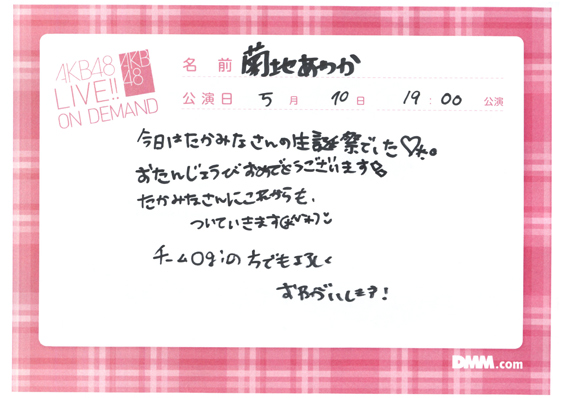 AKB48
LIVE!!
ON DEMAND
AKB
48
名 前 菊地あやか
公演日 5月 10日 19:00 公演
今日はたかみなさんの生誕祭でした♡
おたんじょうびおめでとうございます
たかみなさんにこれからも、
ついていきます
チームOgiの方でもよろしく
おねがいします!
DMM.com